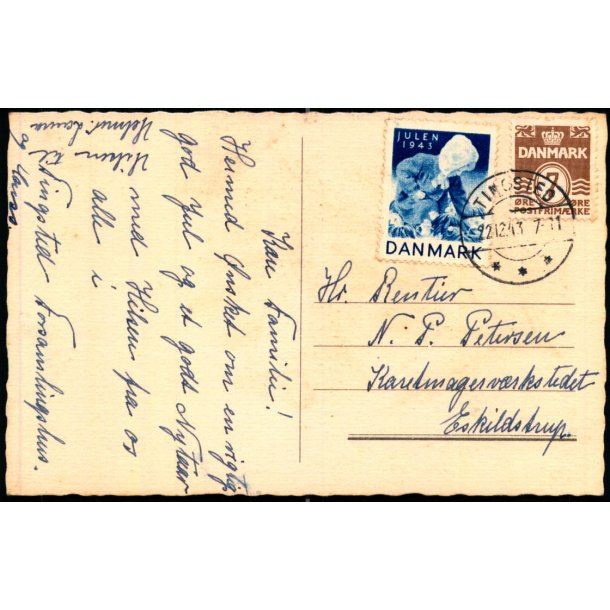 JULEN
1943
DANMARK
DANMARK
7
ØRE ØRE
POSTFRIMÆRKE
TINGSTED
22.12.43 7-11
Hr. Rentier
N. P. Petersen
Karetmagerværkstedet
Eskildstrup.
Kære Familie!
Hermed Ønsket om en rigtig
god Jul og et godt Nytaar
med Hilsen fra os
alle i
Tingsted Forsamlingshus.
Hilsen til
Helmut. Laura
og Lars